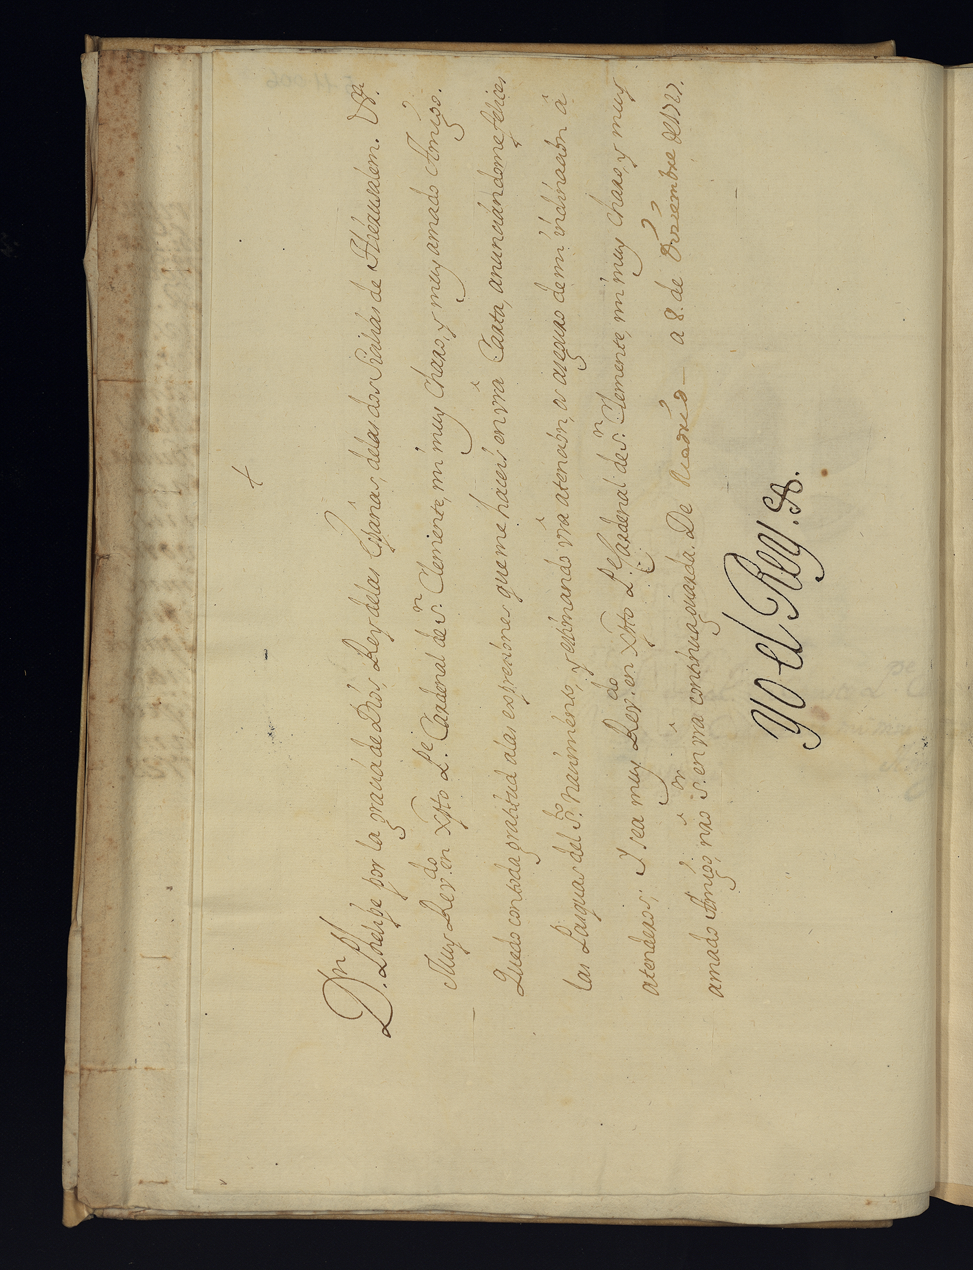 +
Dn. Phelipe por la gracia de Dios, Rey de las Españas, de las dos Sicilias de Hierusalem. &a.
Muy Rev.do en Xpto Pe. Cardenal de Sn. Clemente, mi muy Charo, y muy amado Amigo.
Quedo con toda gratitud a las expresiones que me haceis en vrâ Carta, anunciandome felices
las Pasquas del Sto. nacimiento, y estimando vrâ atencion, os aseguro de mi inclinacion â
atenderos; Y sea muy Rev.do en Xpto Pe. Cardenal de Sn. Clemente, mi muy Charo, y muy
amado Amigo, nrô Sor. en vrâ continua guarda. De Madrid a 8. de Diziembre de 1727.
Yo el Rey.